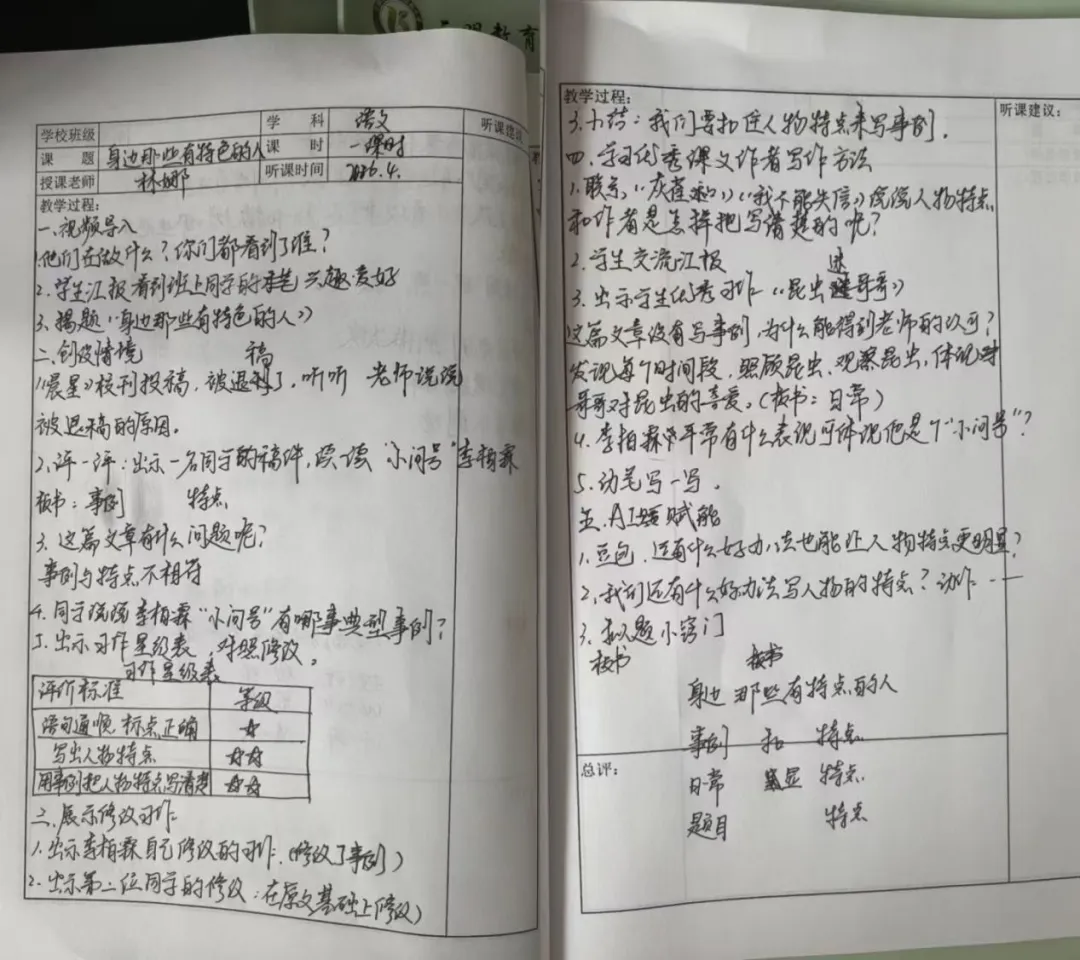 教育
学校班级 学 科 语文 听课建议
课 题 身边那些有特色的人 课 时 一课时
授课老师 林娜 听课时间 2026.4.
教学过程:
一、视频导入
1.他们在做什么?你们都看到了谁?
2.学生汇报看到班上同学的 兴趣爱好
3.揭题《身边那些有特色的人》
二、创设情境
稿
《晨星》校刊投稿,被退了,听听 老师说说
被退稿的原因。
2、评一评:出示一名同学的稿件,读读“小问号”李柏霖
板书:事例 特点
3.这篇文章有什么问题呢?
事例与特点不相符
4.同学说说李柏霖“小问号”有哪事典型事例?
5.出示习作星级表,对照修改。
习作星级表
评价标准 等级
语句通顺 标点正确 ☆
写出人物特点 ☆☆
用事例把人物特点写清楚 ☆☆
三、展示修改习作
1.出示李柏霖自己修改的习作.(修改了事例)
2.出示第二位同学的修改:在原文基础上修改)
教学过程: 听课建议:
3.小结:我们要扣住人物特点来写事例.
四、学习优秀课文作者写作方法
1.联系,《灰雀》《我不能失信》说说人物特点
和作者是怎样把写清楚的呢?
2.学生交流汇报
迷
3.出示学生优秀习作《昆虫哥哥》
这篇文章没有写事例,为什么能得到老师的认可?
发现每个时间段,照顾昆虫、观察昆虫,体现对
哥哥对昆虫的喜爱。(板书:日常)
4.李柏霖平常有什么表现可体现他是个“小问号”?
5.动笔写一写。
五.AI赋能
1.豆包,还有什么好办法也能让人物特点更明显?
2.我们还有什么好办法写人物的特点?动作……
3.拟题小窍门
板书 板书
身边那些有特点的人
事例 和 特点
总评:
日常 显 特点
题目 特点